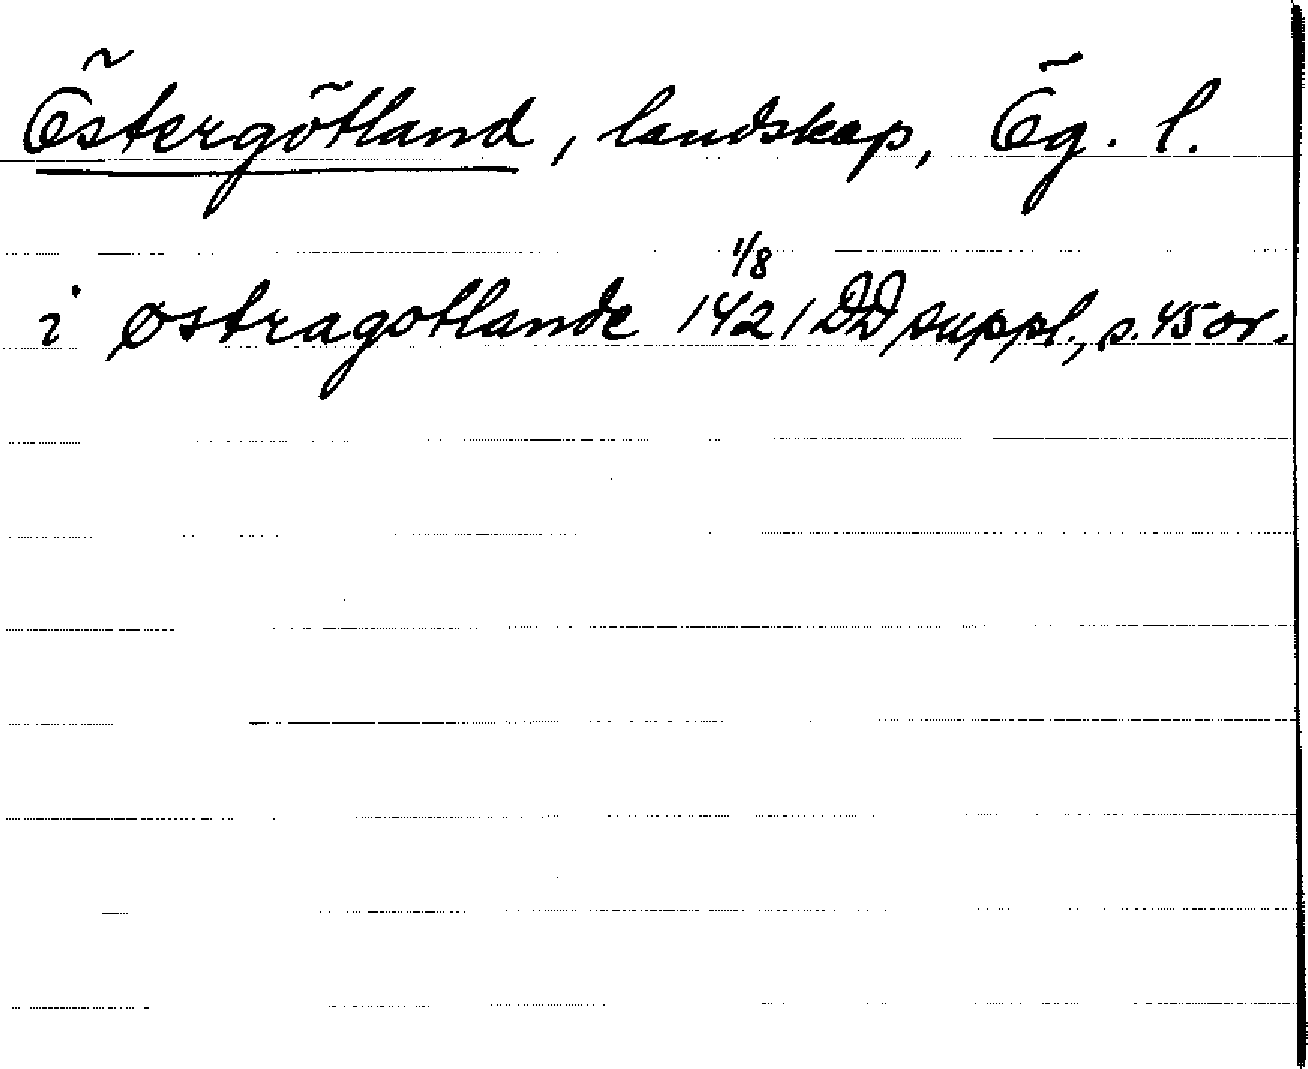 Östergötland, landskap, Ög. l.
i østragotlande 1/8 1421 DD suppl., s. 45 or.